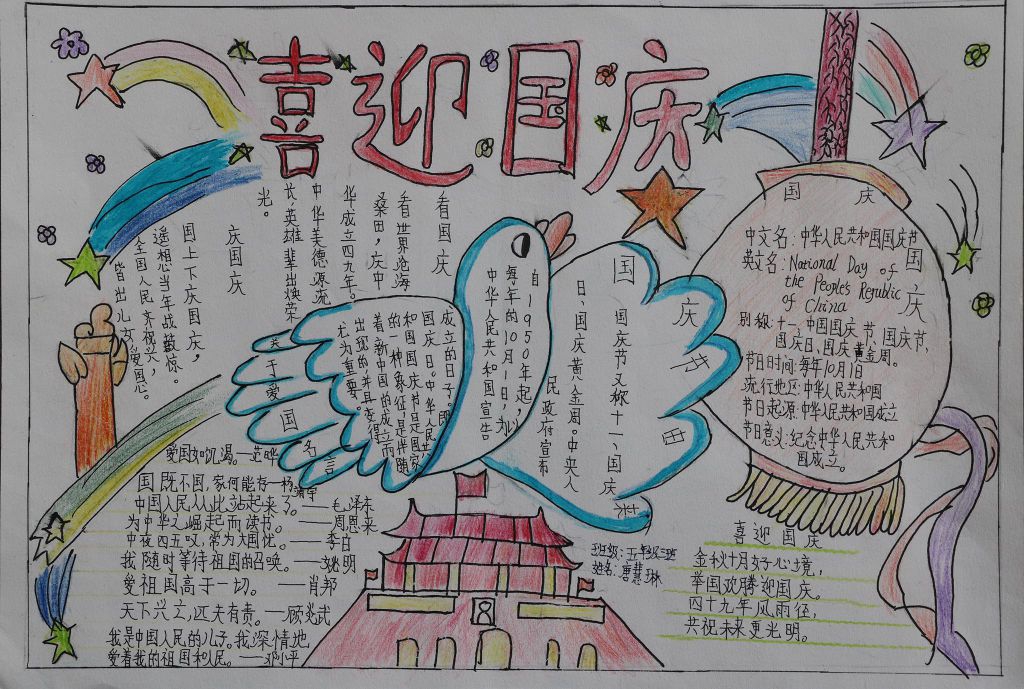 喜迎国庆
看国庆
看世界沧海
桑田，庆中
华成立四九年。
中华美德源流
长，英雄辈出焕荣
光。
庆国庆
国上下庆国庆，
遥想当年战鼓惊。
全国人民齐祝兴，
皆出儿女爱国恩。
国庆
中文名：中华人民共和国国庆节
英文名：National Day of
the People's Republic
of China
别称：十一、中国国庆节、国庆节、
国庆日、国庆黄金周。
节日时间：每年10月1日
流行地区：中华人民共和国
节日起源：中华人民共和国成立
节日意义：纪念中华人民共和
国成立。
国庆
国庆节由来
国庆节又称十一、国庆
日、国庆黄金周。中央人
民政府宣布
自1950年起，以
每年的10月1日，
中华人民共和国宣告
成立的日子，即
国庆日。中华人民共
和国国庆节是国家
的一种象征，是伴随
着新中国的成立而
出现的，并且变得
尤为重要。
关于爱国名言
爱国如饥渴。—范晔
国既不国，家何能存—杨靖宇
中国人民从此站起来了。——毛泽东
为中华之崛起而读书。——周恩来
中夜四五叹，常为大国忧。——李白
我随时等待祖国的召唤。——姚明
爱祖国高于一切。——肖邦
天下兴亡，匹夫有责。——顾炎武
我是中国人民的儿子。我深情地
爱着我的祖国和人民。——邓小平
班级：五年级三班
姓名：曾慧琳
喜迎国庆
金秋十月好心境，
举国欢腾迎国庆。
四十九年风雨径，
共祝未来更光明。